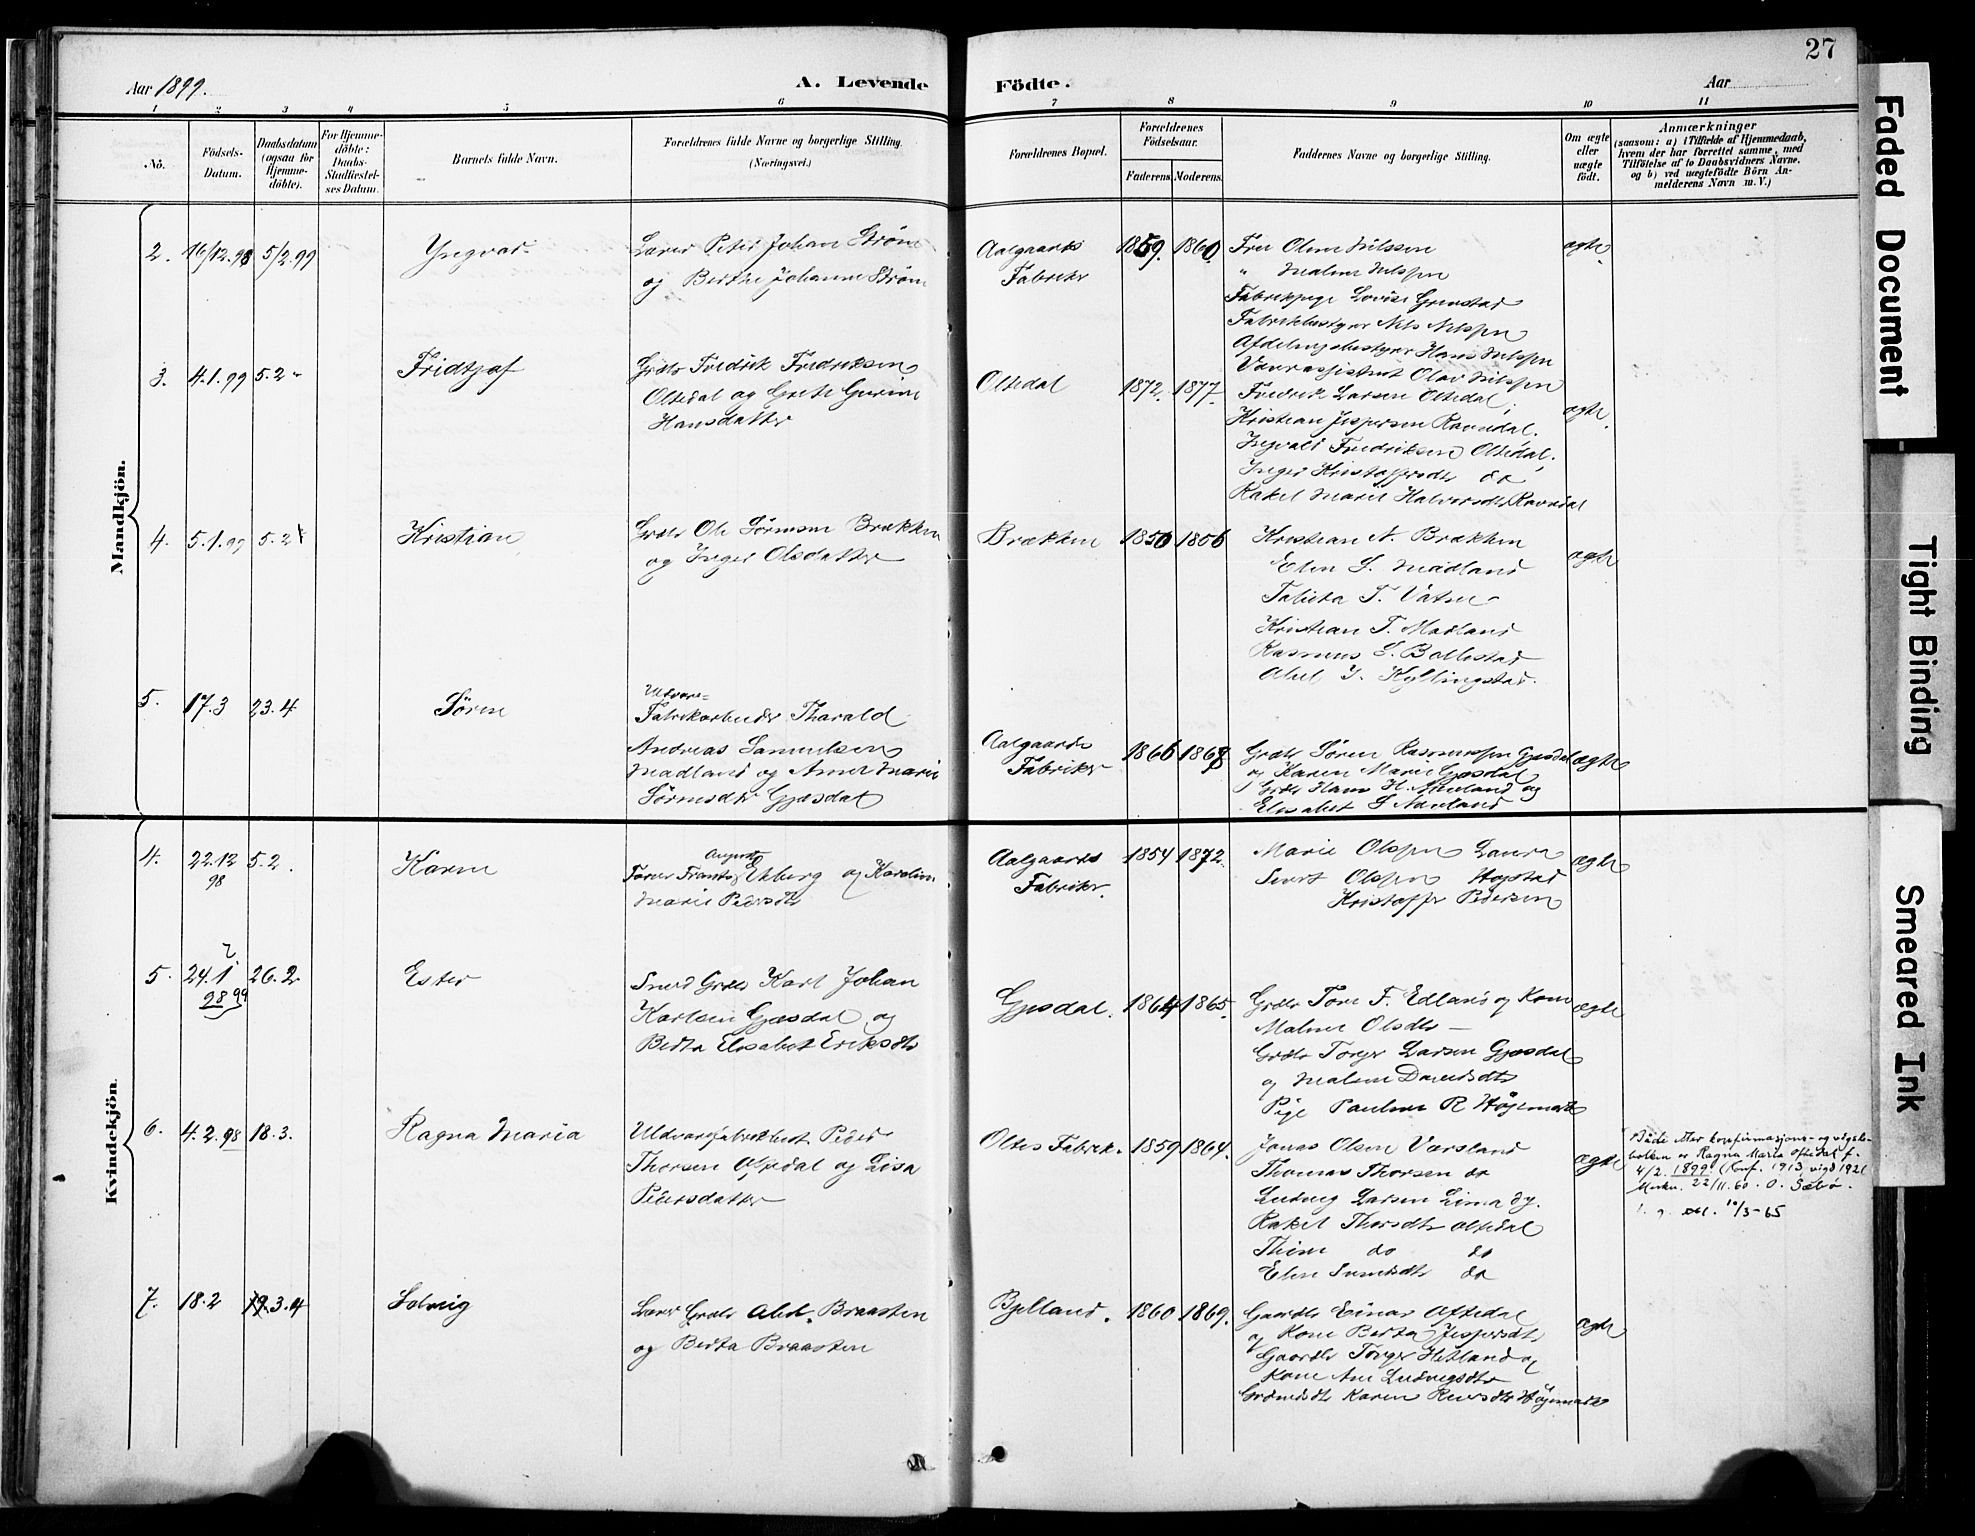 27
Aar 1899.
A. Levende Födte.
Aar
1 2 3 4 5 6 7 8 9 10 11
No.
Födsels-
Datum.
Daabsdatum
(ogsaa for
Hjemme-
döbte).
For Hjemme-
döbte:
Daabs-
Stadfæstel-
ses Datum.
Barnets fulde Navn.
Forældrenes fulde Navne og borgerlige Stilling.
(Næringsvei.)
Forældrenes Bopæl.
Forældrenes
Födselsaar.
Faderens. Moderens.
Faddernes Navne og borgerlige Stilling.
Om ægte
eller
uægte
födt.
Anmærkninger
(saasom: a) i Tilfælde af Hjemmedaab,
hvem der har forrettet samme, med
Tilföielse af to Daabsvidners Navne,
og b) ved uægtefödte Börn An-
melderens Navn m. V.)
Mandkjön.
2. 16/12.98 5/2.99 Yngvar
Lærer Peter Johan Strøm
og Berthe Johanne Strøm
Aalgaards
Fabriker
1859. 1860.
Fru Oline Nilssen
" Malene Nilssen
Fabrikpige Lovise Grimstad
Fabrikbestyrer Nils Nilssen
Afdelingsbestyrer Hans Nilssen
Olav Nilssen
ægte
3. 4.1.99 5.2 " Fridtjof
Grdb Fredrik Fredriksen
Oltedal og Grete Gurine
Hansdatter
Oltedal
1872. 1877.
Fredrik Larsen Oltedal,
Kristian Jespersen Ravndal,
Ingvald Fredriksen Oltedal,
Inger Kristoffersdtr do
Rakel Marie Halvorsdtr Ravndal
ægte
4. 5.1.99 5.2 Kristian
Grdb Ole Sörensen Brækken
og Inger Olsdatter
Brækken
1850 1856
Kristian N. Brækken
Elen S. Madland
Tabita T. Vatne
Kristian T. Madland
Rasmus S. Bollestad
Abel J. Kyllingstad.
ægte
5. 17.3 23.4 Sören
Uldvare=
Fabrikarbeider Tharald
Andreas Samuelsen
Madland og Anne Marie
Sörensdtr Gjæsdal
Aalgaards
Fabriker
1866 1868
Grdb Sören Rasmussen Gjæsdal
og Karen Marie Gjæsdal
Grdb Hans H. Aneland og
Elisabet S Aneland
ægte
Kvindekjön.
4. 22.12 98 5.2. Karen
August
Farver Frants Ekberg og Karoline
Marie Pedersdtr
Aalgaards
Fabriker.
1854 1872.
Marie Olssen Laura
Sivert Olssen Hogstad
Kristoffer Pedersen
ægte
5. 24.1 98 99 26.2 Ester
Smed Grdb Karl Johan
Karlsen Gjæsdal og
Berta Elisabet Eriksdtr
Gjæsdal.
1864 1865.
Grdb Tore F. Edland og Kone
Malene Olsdtr —
Grdb Torger Larsen Gjæsdal
og Malene Davidsdtr
Pige Pauline R Høgemark
ægte
6. 4.2.98 18.3. Ragna Maria
Uldvarefabrikbest. Peder
Thorsen Oftedal og Lisa
Pedersdatter
Oltes Fabrik.
1859 1864.
Jonas Olsen Varsland
Thomas Thorsen do
Ludvig Larsen Lima
Rakel Thorsdtr Oltedal
Thine do do
Elen Svendsdtr do
ægte
Både etter konfirmasjons- og vigsle-
boken er Ragna Maria Oftedal f.
4/2. 1899. (Konf. 1913, vigd 1921
Merkn. 22/11.60. O. Sæbø.
10/3-65
7. 18.2 3.4 Solveig
Lærer Grdb Abel Braasten
og Berta Braasten
Bjelland.
1860 1869.
Gaardb Einar Oftedal
og Kone Berta Jespersdtr
Gaardb Torger Hetland og
Kone Ane Ludvigsdtr
Karen Reiersdtr Høgemark
ægte
Faded Document
Tight Binding
Smeared Ink